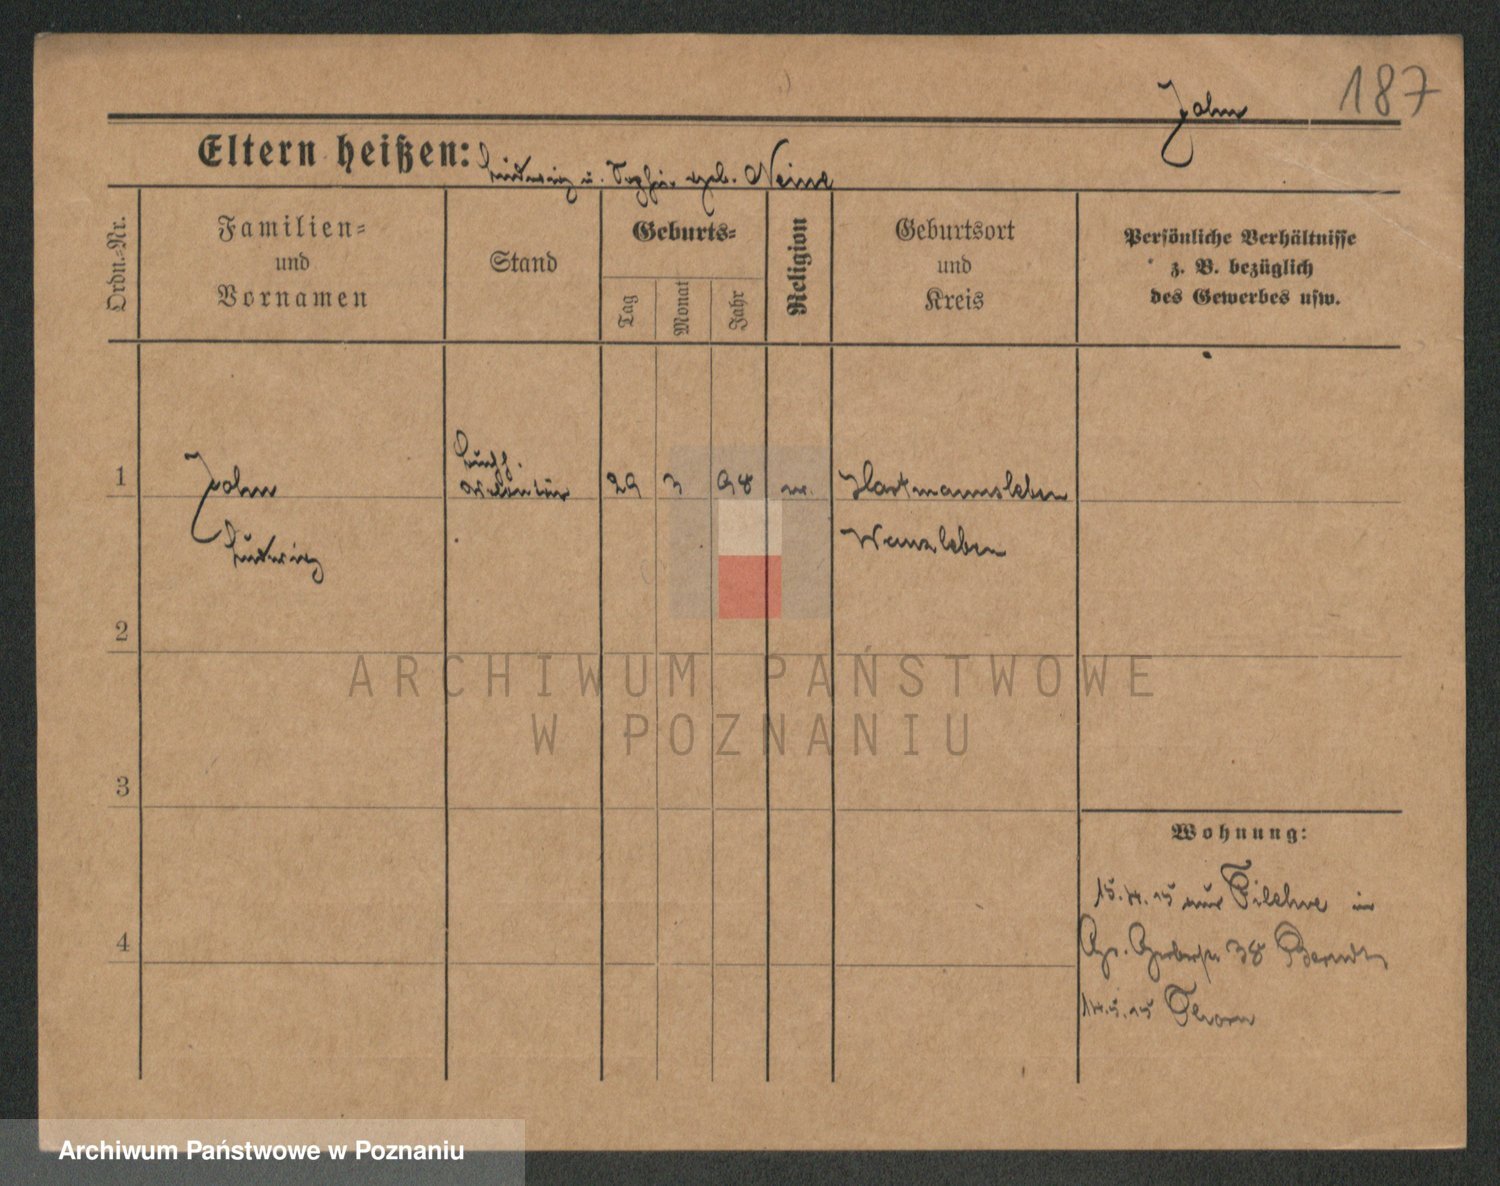 187
John
Eltern heißen: Ludwig u. Sophie geb. Neine
Ordn.=Nr.
Familien=
und
Vornamen
Stand
Geburts=
Tag
Monat
Jahr
Religion
Geburtsort
und
Kreis
Persönliche Verhältnisse
z. B. bezüglich
des Gewerbes usw.
1
John
Ludwig
29 3 98
Wanzleben
2
ARCHIWUM PAŃSTWOWE
W POZNANIU
3
Wohnung:
15.4.15 aus Filehne in
Gr. Gerberstr. 38
4
14.5.15 Thorn
Archiwum Państwowe w Poznaniu